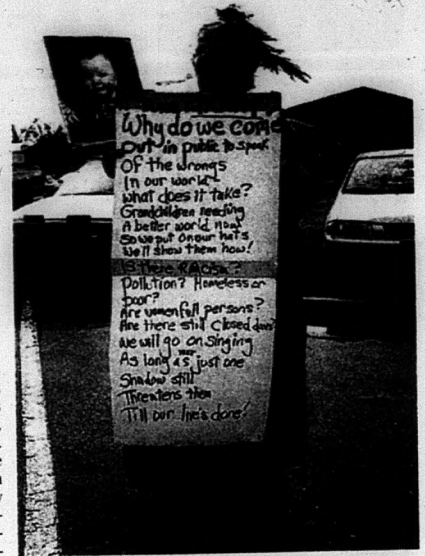 Why do we come
out in public to speak
Of the wrongs
In our world
What does it take?
Grandchildren needing
A better world now!
So we put on our hats
We'll show them how!
Is there RAcism?
Pollution? Homeless or
poor?
Are women full persons?
Are there still closed doors?
We will go on singing
As long as just one
Shadow still
Threatens them
Till our line's done!